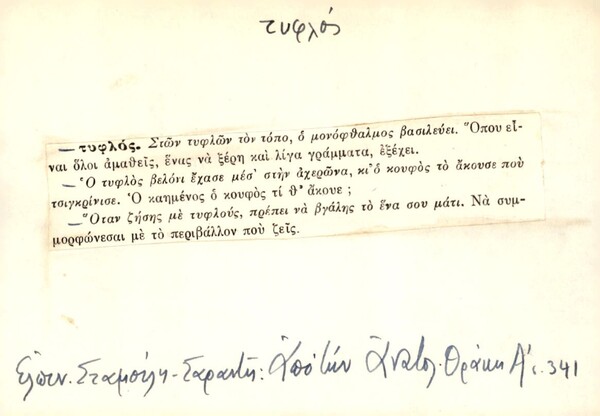 τυφλός
— τυφλός. Στῶν τυφλῶν τὸν τόπο, ὁ μονόφθαλμος βασιλεύει. Ὅπου εἶ-
ναι ὅλοι ἀμαθεῖς, ἕνας νὰ ξέρη καὶ λίγα γράμματα, ἐξέχει.
— Ὁ τυφλὸς βελόνι ἔχασε μέσ’ στὴν ἀχερῶνα, κι’ ὁ κουφὸς τὸ ἄκουσε ποὺ
τσιγκρίνισε. Ὁ καημένος ὁ κουφὸς τί θ’ ἄκουε ;
— Ὅταν ζήσης μὲ τυφλούς, πρέπει νὰ βγάλης τὸ ἕνα σου μάτι. Νὰ συμ-
μορφώνεσαι μὲ τὸ περιβάλλον ποὺ ζεῖς.
Ἐλπιν. Σταμούλη - Σαραντῆ: Ἀπὸ τὴν Ἀνατολ. Θράκη Α΄ σ. 341